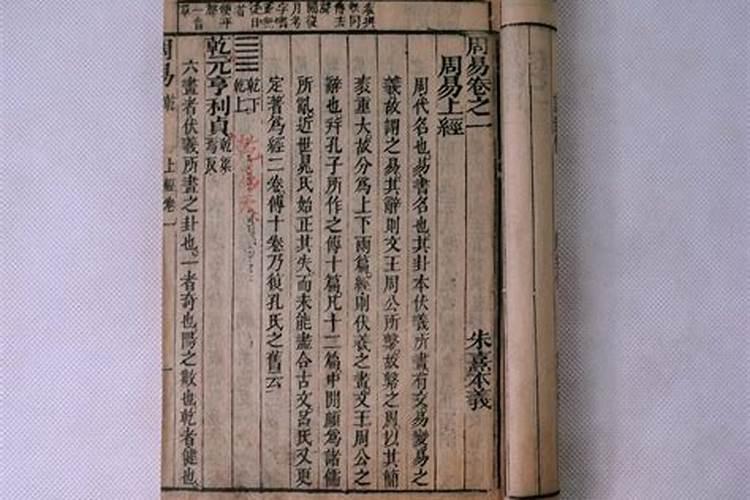 周易卷之一
朱熹本義
周易上經
周代名也易書名也其卦本伏羲所畫有交易變易之
義故謂之易其辭則文王周公所繫故繫之周以其簡
袠重大故分爲上下兩篇經則伏羲之畫文王周公之
辭也并孔子所作之傳十篇凡十二篇中間頗爲諸儒
所亂近世晁氏始正其失而未能盡合古文呂氏又更
定著爲經二卷傳十卷乃復孔氏之舊云
乾下
乾上
乾元亨利貞
六畫者伏羲所畫之卦也一者奇也陽之數也乾者健也
周易
乾
上經卷一